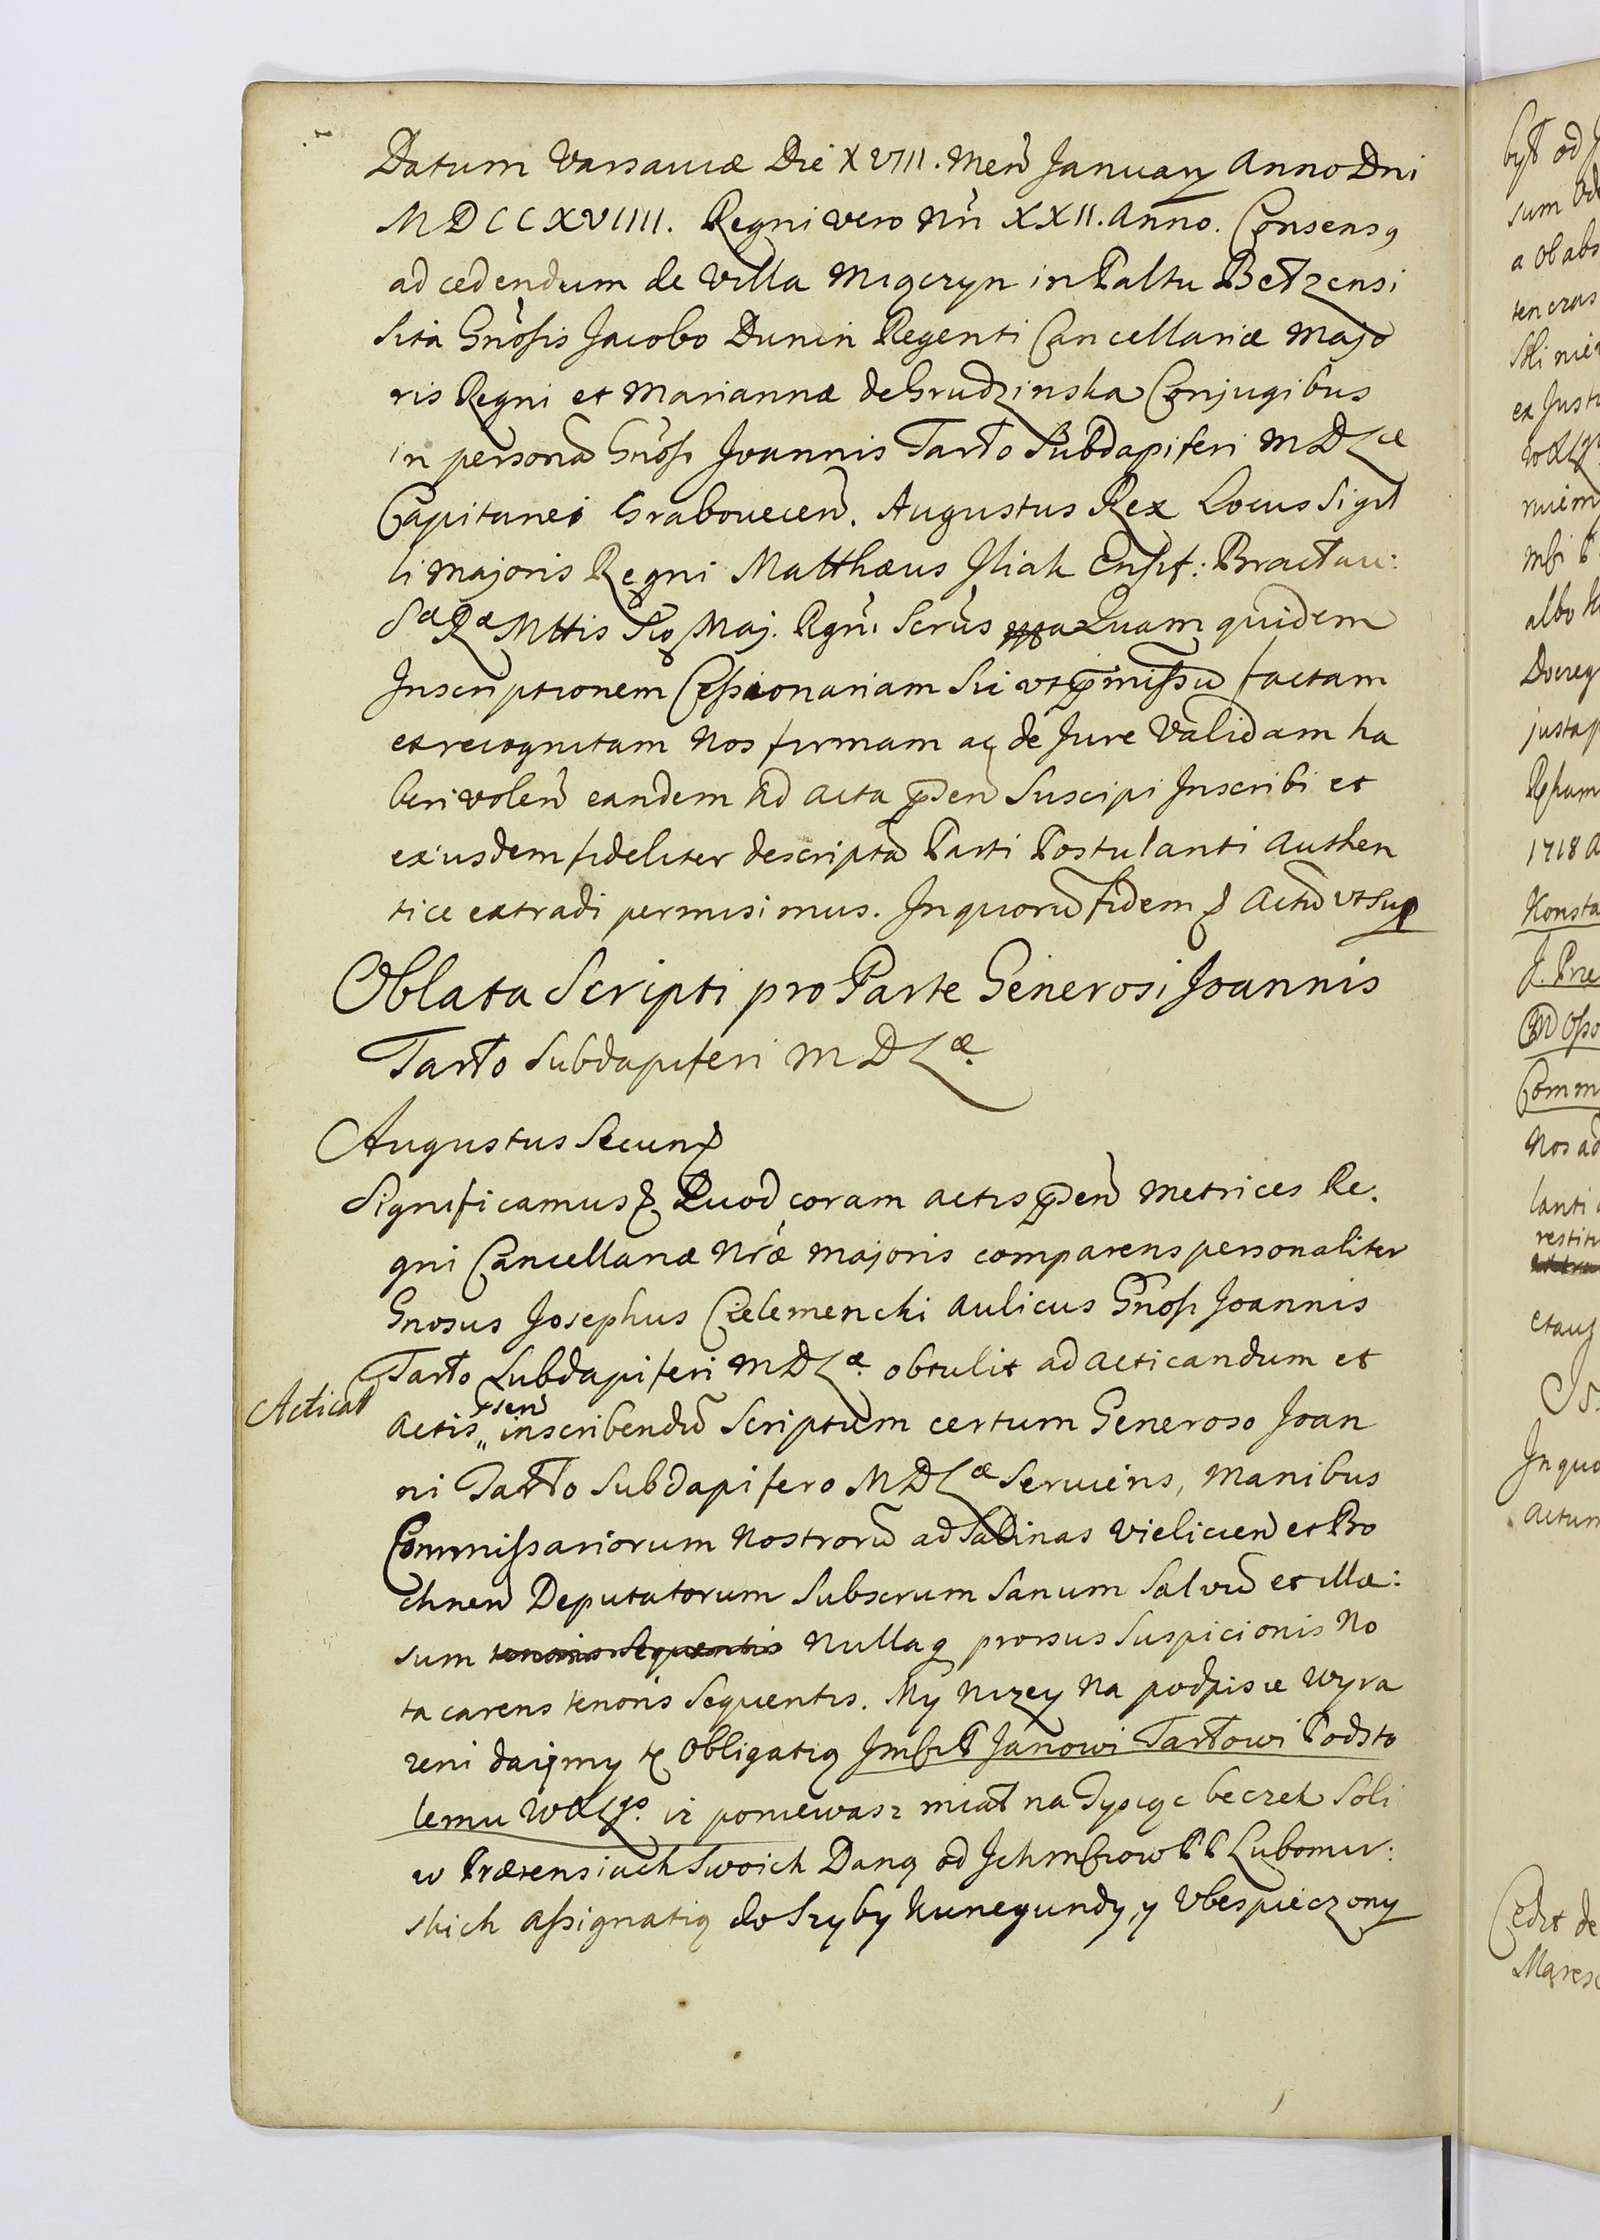 Datum Varsaviæ Die XVIII. Men̄ January Anno Dni
MDCCXVIIII. Regni vero Nr̄i XXII. Anno. Consensq
ad cedendum de Villa Migczyn in Paltu Bełzensi
sita Gnosis Jacobo Dunin Regenti Cancellariæ Majo
ris Regni et Mariannæ de Grudzinska Conjugibus
in personā Gnosi Joannis Tarło Subdapiferi M D Lᵃᵉ
Capitanei Grabovecen̄. Augustus Rex Locus Sigil
li majoris Regni Matthæus Iliak Ensif: Bracłav:
Sᵃ Rᵃ Mttis Maj. Rgni Scrius Quam quidem
Inscriptionem Cessionariam sic ut p̄missū factam
et recognitam Nos firmam aq de Jure Validam ha
beri volen̄ eandem ad acta p̄sen̄ Suscipi Inscribi et
exiusdem fideliter descriptā Parti Postulanti Authen
tice extradi permisimus. In quorū fidem & Actū ut Sup
Oblata Scripti pro Parte Generosi Joannis
Tarło Subdapiferi M D Lᵃᵉ.
Augustus Secun&
Significamus & Quod coram actis p̄sen̄ Metrices Re.
gni Cancellariæ Nræ Majoris comparens personaliter
Gnosus Josephus Cielemencki Aulicus Gnosi Joannis
Tarło Subdapiferi M D Lᵃᵉ. obtulit ad acticandum et
Acticatt
p̄sen̄
Actis,, inscribendū Scriptum certum Generoso Joan
ni Tarło Subdapifero M D Lᵃᵉ Serviens, Manibus
Commissariorum Nostrorū ad Salinas Vielicien̄ et Bo
chnen̄ Deputatorum Subscrum Sanum Salvū et illæ:
sum tenoris Sequentis Nullaq prorsus Suspicionis No
ta carens tenoris Sequentis. My Nizey Na podpisie Wyra
zeni daiemy tę Obligatią Jmści P Janowi Tarłowi Podsto
lemu WXLgo. iz poniewasz miał na Tysiąc beczek Soli
w Prætensiach Swoich Daną od Ichmściow PP Lubomir:
skich assignatią do Szyby Kunegundy, y Ubespieczony